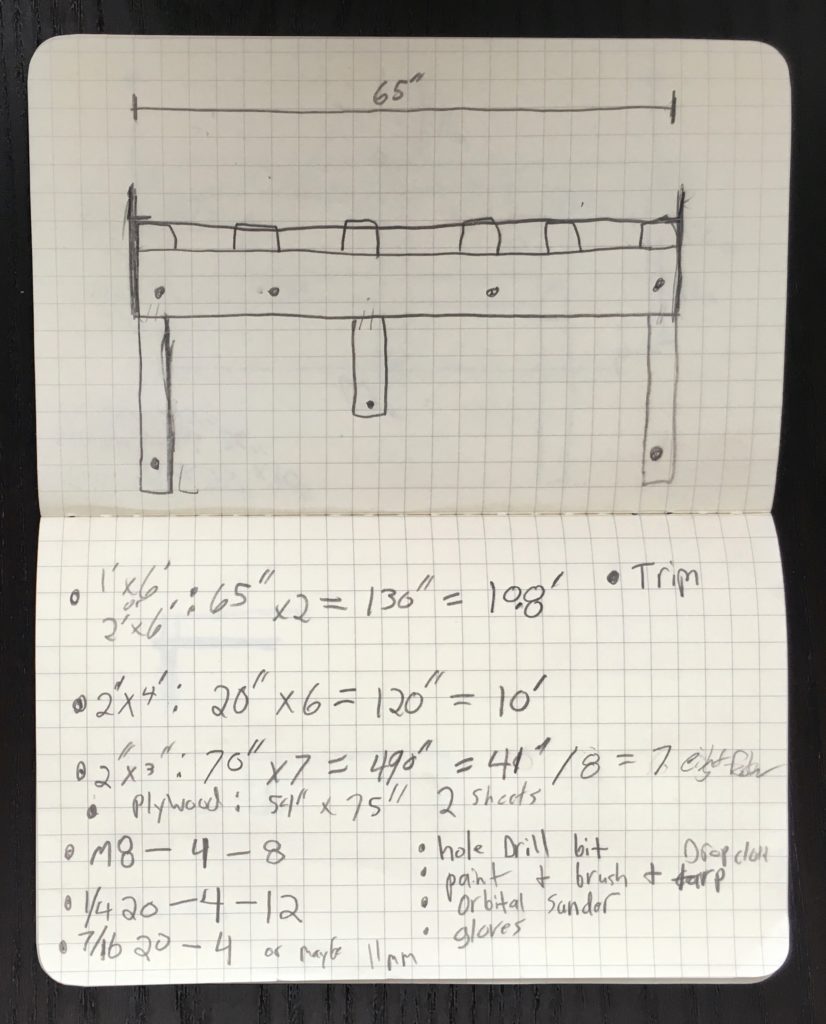 65"
1'x6' : 65" x2 = 130" = 10.8'
or
2'x6'
• Trim
• 2'x4' : 20" x 6 = 120" = 10'
• 2"x3" : 70" x 7 = 490" = 41' / 8 = 7 eight
• Plywood : 54" x 75" 2 sheets
• M8 – 4 – 8
• 1/4 20 – 4 – 12
• 7/16 20 – 4 or maybe 11mm
• hole Drill bit
• paint + brush + tarp Drop cloth
• orbital sander
• gloves